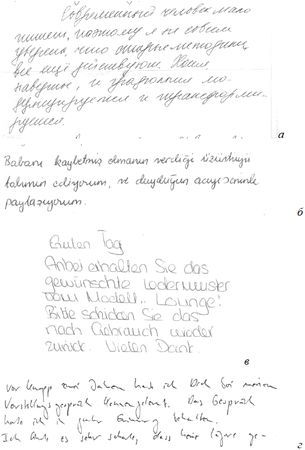 Современный человек мало
пишет, поэтому я не совсем
уверена, что старые методики
все ещё действуют. Хотя,
наверное, и графология мо-
дулируется и трансформи-
руется.
а
Babanı kaybetmiş olmanın verdiği üzüntüyü
tahmin ediyorum, ve duyduğun acıyı seninle
paylaşıyorum.
б
Guten Tag
Anbei erhalten Sie das
gewünschte Ledermuster
vom Modell.. Lounge!
Bitte schicken Sie das
nach Gebrauch wieder
zurück. Vielen Dank.
в
Vor knapp zwei Jahren habe ich Dich bei meinem
Vorstellungsgespräch kennengelernt. Das Gespräch
habe ich in guter Erinnerung behalten.
Ich finde es sehr schade, dass keine ge-
г